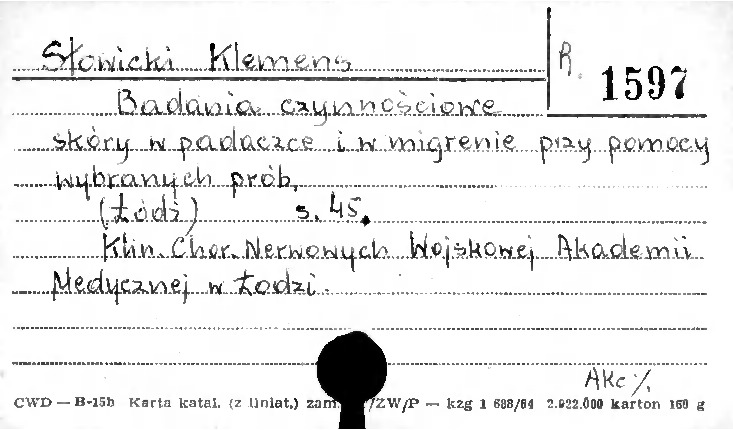 Słowicki Klemens
R. 1597
Badania czynnościowe
skóry w padaczce i w migrenie przy pomocy
wybranych prób.
(Łódź) s. 45.
Klin. Chor. Nerwowych Wojskowej Akademii
Medycznej w Łodzi.
Akc %
CWD — B-15b Karta katal. (z liniat.) zam. /ZW/P — kzg 1 688/64 2.922.000 karton 160 g